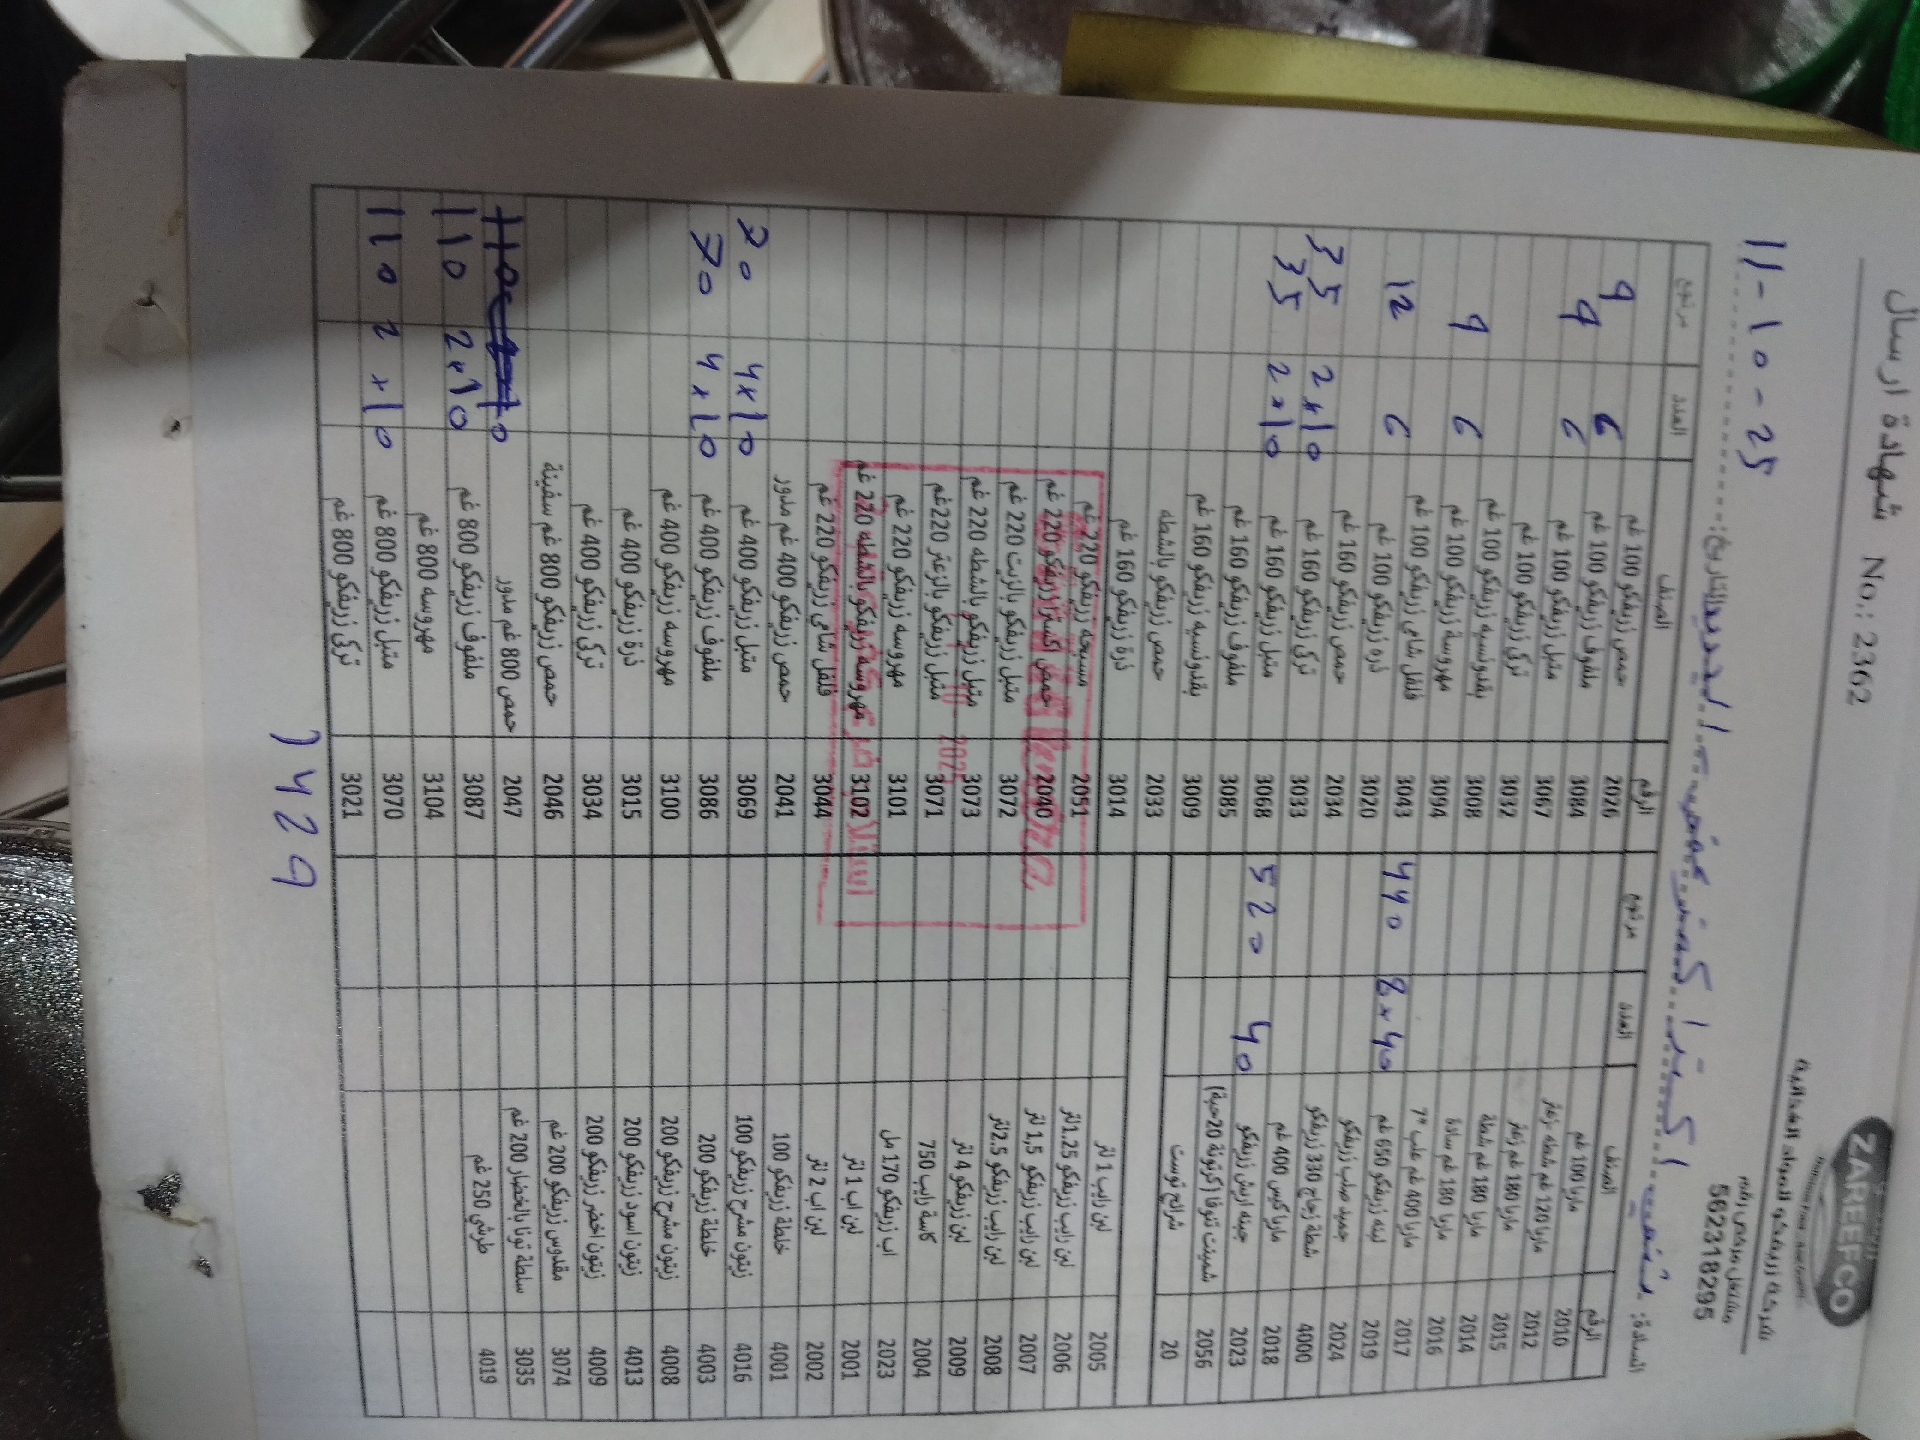 شهادة ارسال No.: 2362
ZAREFCO
شركة زريفكو للمواد الغذائية
مشتغل مرخص رقم
562318295
السادة:
التاريخ: 11-10-25
الرقم الصنف العدد مرتجع
2010 ماريا 100 غم
2012 ماريا 120 غم شطة، زعتر
2015 ماريا 180 غم زعتر
2014 ماريا 180 غم شطة
2016 ماريا 180 غم سادة
2017 ماريا 400 غم علب 7*
2019 لبنه زريفكو 650 غم 8×40 440
2024 جميد صلب زريفكو
4000 شطة زجاج 330 زريفكو
2018 ماريا كيس 400 غم
2023 جبينه اريش زريفكو 40 520
2056 شمينت تنوفا (كرتونة 20حبة)
20 شرائح توست
2005 لبن رايب 1 لتر
2006 لبن رايب زريفكو 1.25لتر
2007 لبن رايب زريفكو 1,5 لتر
2008 لبن رايب زريفكو 2.5لتر
2009 لبن زريفكو 4 لتر
2004 كاسة رايب 750
2023 اب زريفكو 170 مل
2001 لبن اب 1 لتر
2002 لبن اب 2 لتر
4001 خلطة زريفكو 100
4016 زيتون مشرح زريفكو 100
4003 خلطة زريفكو 200
4008 زيتون مشرح زريفكو 200
4013 زيتون اسود زريفكو 200
4009 زيتون اخضر زريفكو 200
3074 مقدوس زريفكو 200 غم
3035 سلطة تونا بالخضار 200 غم
4019 طرشي 250 غم
الرقم الصنف العدد مرتجع
2026 حمص زريفكو 100 غم
3084 ملفوف زريفكو 100 غم 6 9
3067 متبل زريفكو 100 غم 6 9
3032 تركي زريفكو 100 غم
3008 بقدونسية زريفكو 100 غم
3094 مهروسة زريفكو 100 غم 6 9
3043 فلفل شامي زريفكو 100 غم
3020 ذره زريفكو 100 غم 6 12
2034 حمص زريفكو 160 غم
3033 تركي زريفكو 160 غم 2×10 35
3068 متبل زريفكو 160 غم 2×10 35
3085 ملفوف زريفكو 160 غم
3009 بقدونسيه زريفكو 160 غم
2033 حمص زريفكو بالشطه
3014 ذرة زريفكو 160 غم
2051 مسبحه زريفكو 220 غم
2040 حمص اكسترا زريفكو 220 غم
3072 متبل زريفكو بالزيت 220 غم
3073 متبل زريفكو بالشطه 220 غم
3071 متبل زريفكو بالزعتر 220غم
3101 مهروسه زريفكو 220 غم
3102 مهروسه زريفكو بالشطه 220 غم
3044 فلفل شامي زريفكو 220 غم
2041 حمص زريفكو 400 غم مدور
3069 متبل زريفكو 400 غم 4×10 70
3086 ملفوف زريفكو 400 غم 4×10 70
3100 مهروسه زريفكو 400 غم
3015 ذرة زريفكو 400 غم
3034 تركي زريفكو 400 غم
2046 حمص زريفكو 800 غم سفينة
2047 حمص 800 غم مدور
3087 ملفوف زريفكو 800 غم 2×10 110
3104 مهروسه 800 غم
3070 متبل زريفكو 800 غم 2×10 110
3021 تركي زريفكو 800 غم
1429